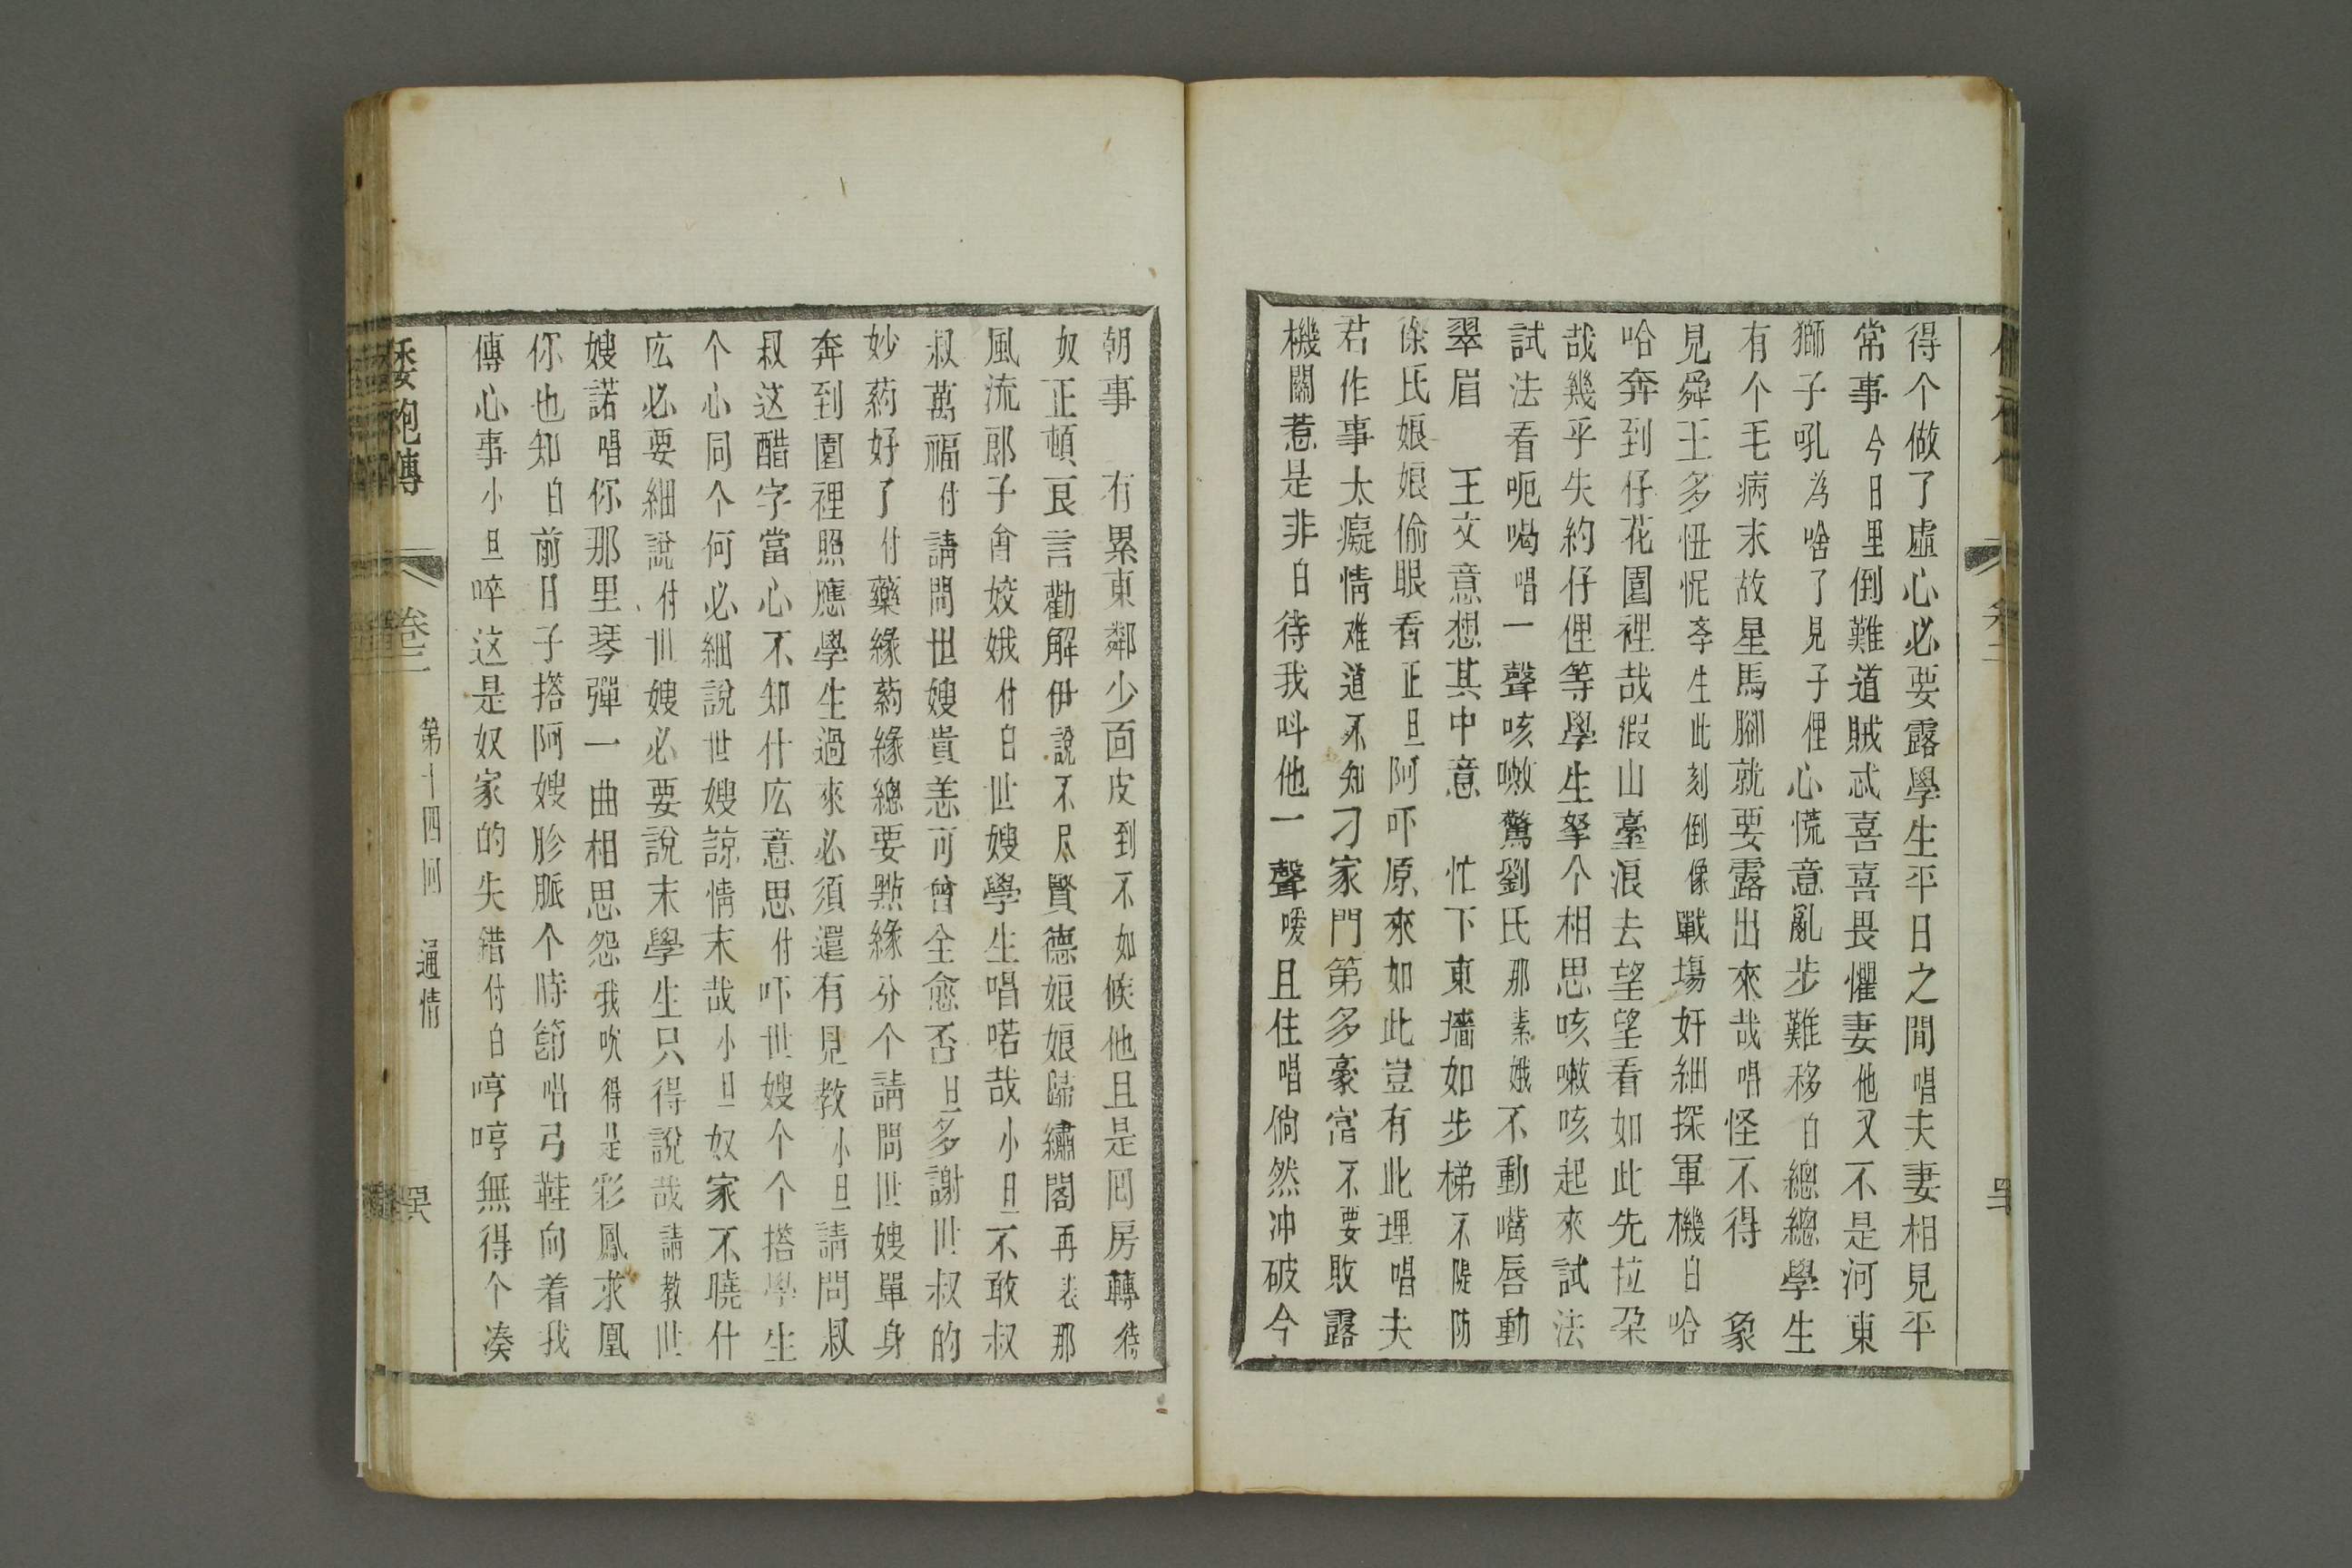 得个做了虛心必要露學生平日之間唱夫妻相見平
常事今日里倒難道賊忒喜喜畏懼妻他又不是河東
獅子吼為啥了見子俚心慌意亂步難移白總總學生
有个毛病末故星馬腳就要露出來哉唱怪不得 象
見舜王多忸怩李生此刻倒像戰場奸細探軍機白哈
哈奔到仔花園裡哉假山臺浪去望望看如此先拉朶
哉幾乎失約仔俚等學生拏个相思咳嗽咳起來試法
試法看呃喝唱一聲咳嗽驚劉氏那素娥不動嘴唇動
翠眉 王文意想其中意 忙下東墻如步梯不隄防
徐氏娘娘偷眼看正旦阿吓原來如此豈有此理唱夫
君作事太癡情难道不知刁家門第多豪富不要敗露
機關惹是非白待我呌他一聲嗳且住唱倘然冲破今
朝事 有累東鄰少面皮到不如候他且是回房轉待
奴正頓良言勸解伊說不尽賢德娘娘歸繡閣再表那
風流郎子會姣娥付白世嫂學生唱喏哉小旦不敢叔
叔萬福付請問世嫂貴恙可曾全愈否旦多謝世叔的
妙葯好了付藥緣葯緣總要點緣分个請問世嫂單身
奔到園裡照應學生過來必須還有見教小旦請問叔
叔这醋字當心不知什庅意思付吓世嫂个个搭學生
个心同个何必細說世嫂諒情末哉小旦奴家不曉什
庅必要細說付世嫂必要說末學生只得說哉請教世
嫂諾唱你那里琴彈一曲相思怨我吹得是彩鳳求凰
你也知白前日子搭阿嫂胗脈个時節唱弓鞋向着我
傳心事小旦啐这是奴家的失錯付白哼哼無得个凑
倭袍傳 卷三 第十四回 通情